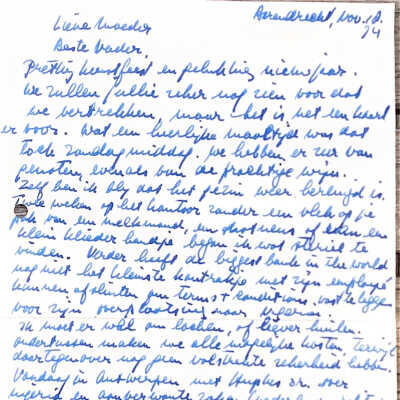 Barendrecht, nov. 18.
74
Lieve Moeder
Beste Vader.
Prettig kerstfeest en gelukkig nieuwjaar.
We zullen jullie zeker nog zien voor dat
we vertrekken, maar het is net een kaart
er voor. Wat een heerlijke maaltijd was dat
toch zondagmiddag. We hebben er zeer van
genoten, evenals van de prachtige wijn.
Zelf ben ik blij dat het gezin weer herenigd is.
Twee weken op het kantoor zonder een vlek op je
jak van een melkmond, en slaat neus of een
klein kliederhandje begon ik wat steriel te
vinden. Verder heeft de biggest bank in the world
nog niet het kleinste kontraktje met zijn employé
kunnen afsluiten om terms + conditions, vast te leggen
voor zijn overplaatsing naar Nigeria.
Ik moet er wel om lachen, of liever huilen.
ondertussen maken we alle mogelijke kosten, terwijl
daartegenover nog geen volstrekte zekerheid hebben.
Vandaag in Antwerpen met Stuphus over
Nigeria en aanverwante zaken